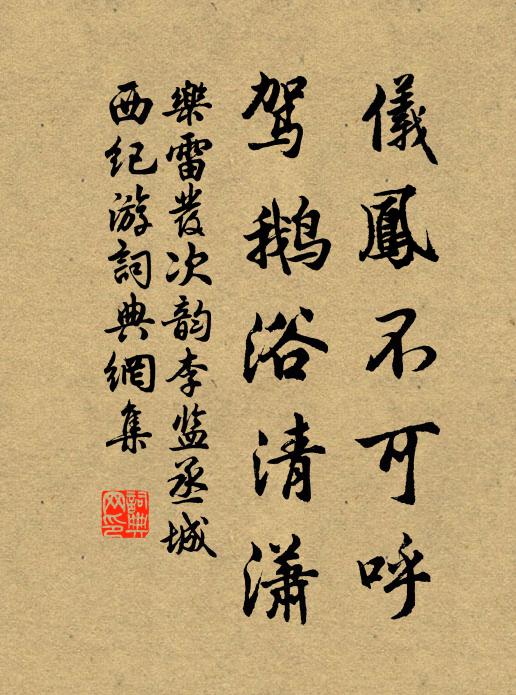 儀鳳不可呼
駕鹅浴清潇
樂雷發次韵李监丞城
西纪游詞典網集
詞典
网印